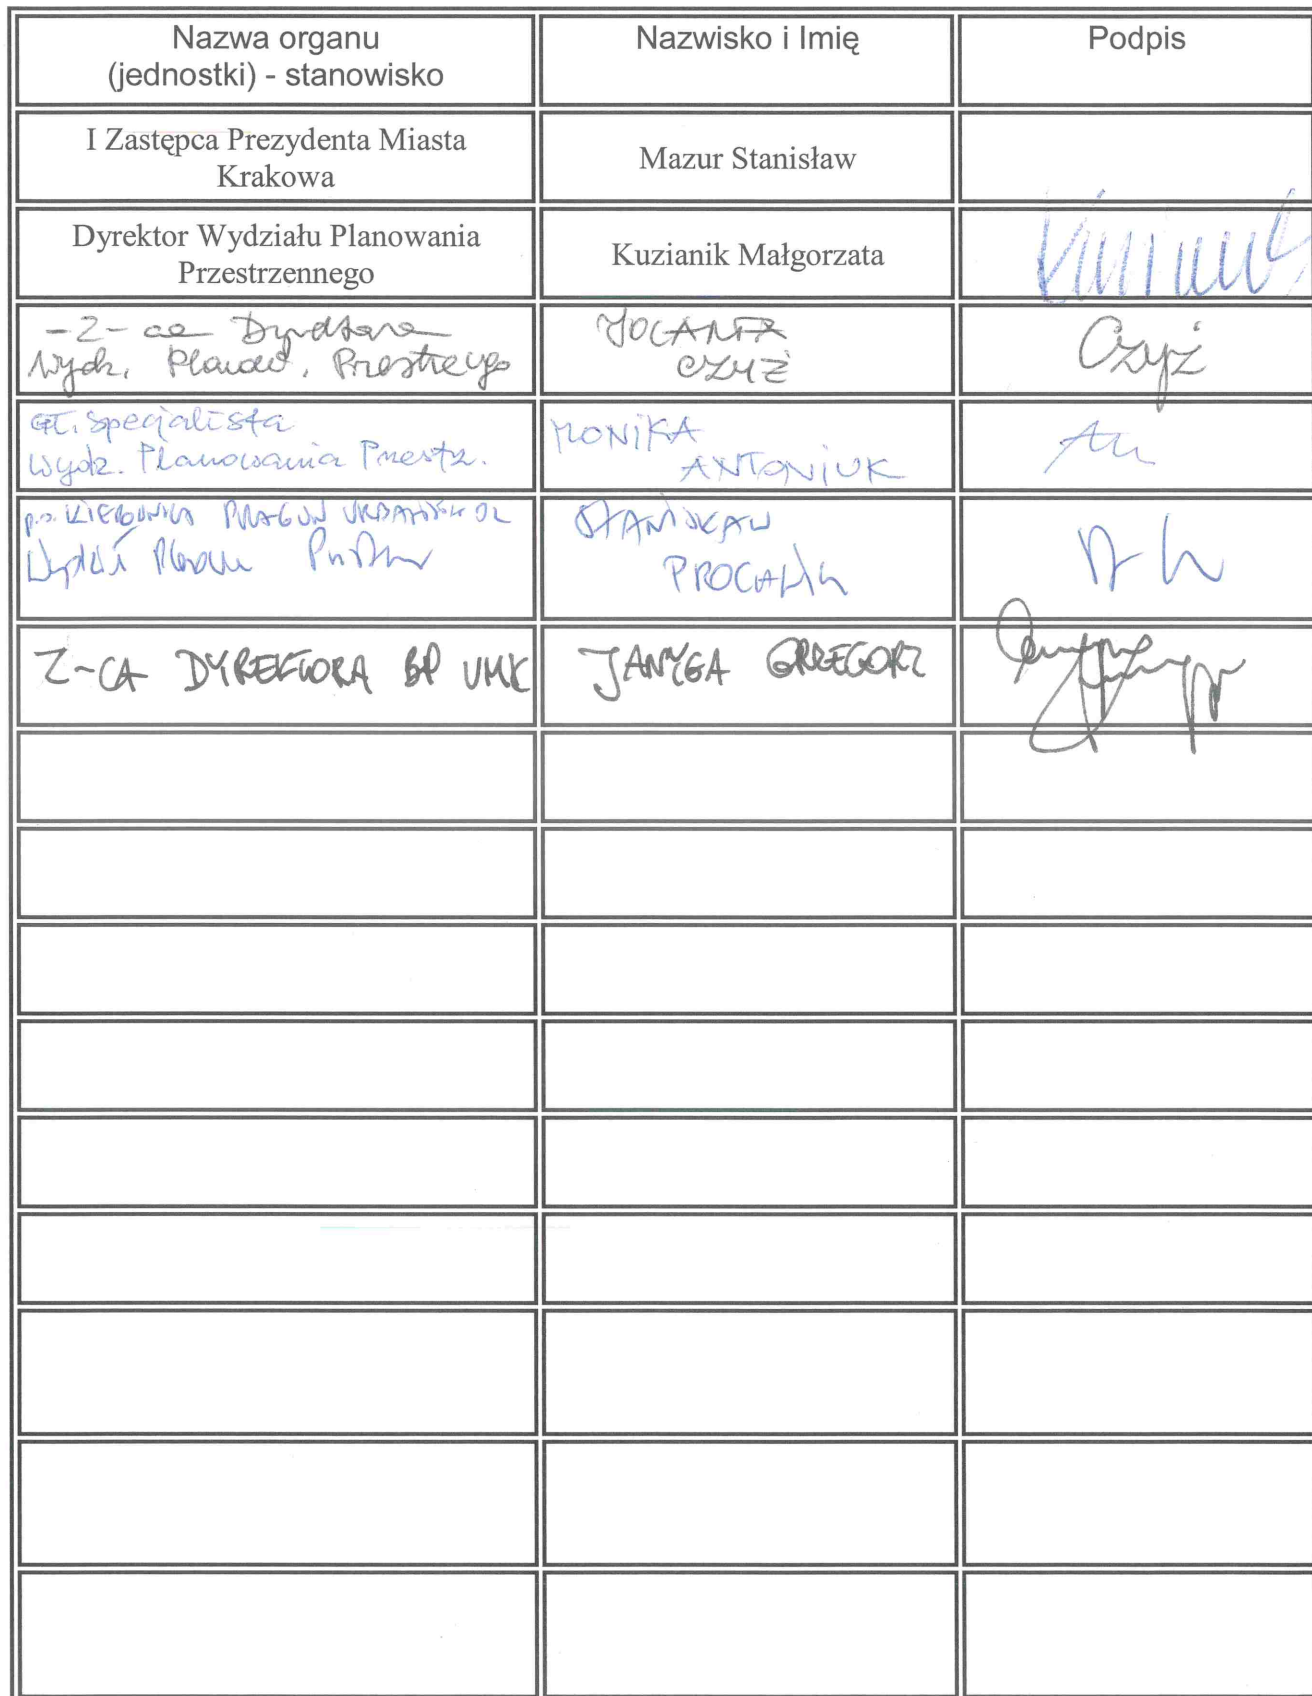 Nazwa organu
(jednostki) - stanowisko
Nazwisko i Imię
Podpis
I Zastępca Prezydenta Miasta
Krakowa
Mazur Stanisław
Dyrektor Wydziału Planowania
Przestrzennego
Kuzianik Małgorzata
-Z-ca Dyrektora
Wydz.
JOLANTA
CZYŻ
Czyż
Gł. specjalista
Wydz. Planowania Przestrz.
MONIKA
ANTONIUK
p.o. KIEROWNIKA
STANISŁAW
Z-CA DYREKTORA BP UMK
JANYGA GRZEGORZ